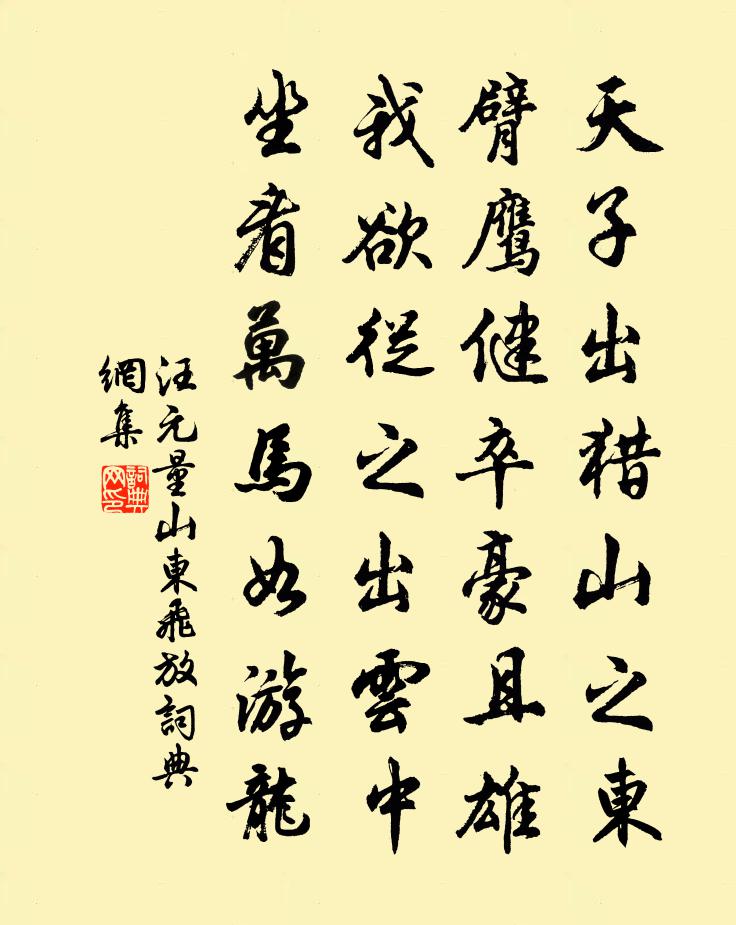 天子出猎山之東
臂鷹健卒豪且雄
我欲從之出雲中
坐看萬馬如游龍
汪元量山東飛放詞典
網集
詞典
网印